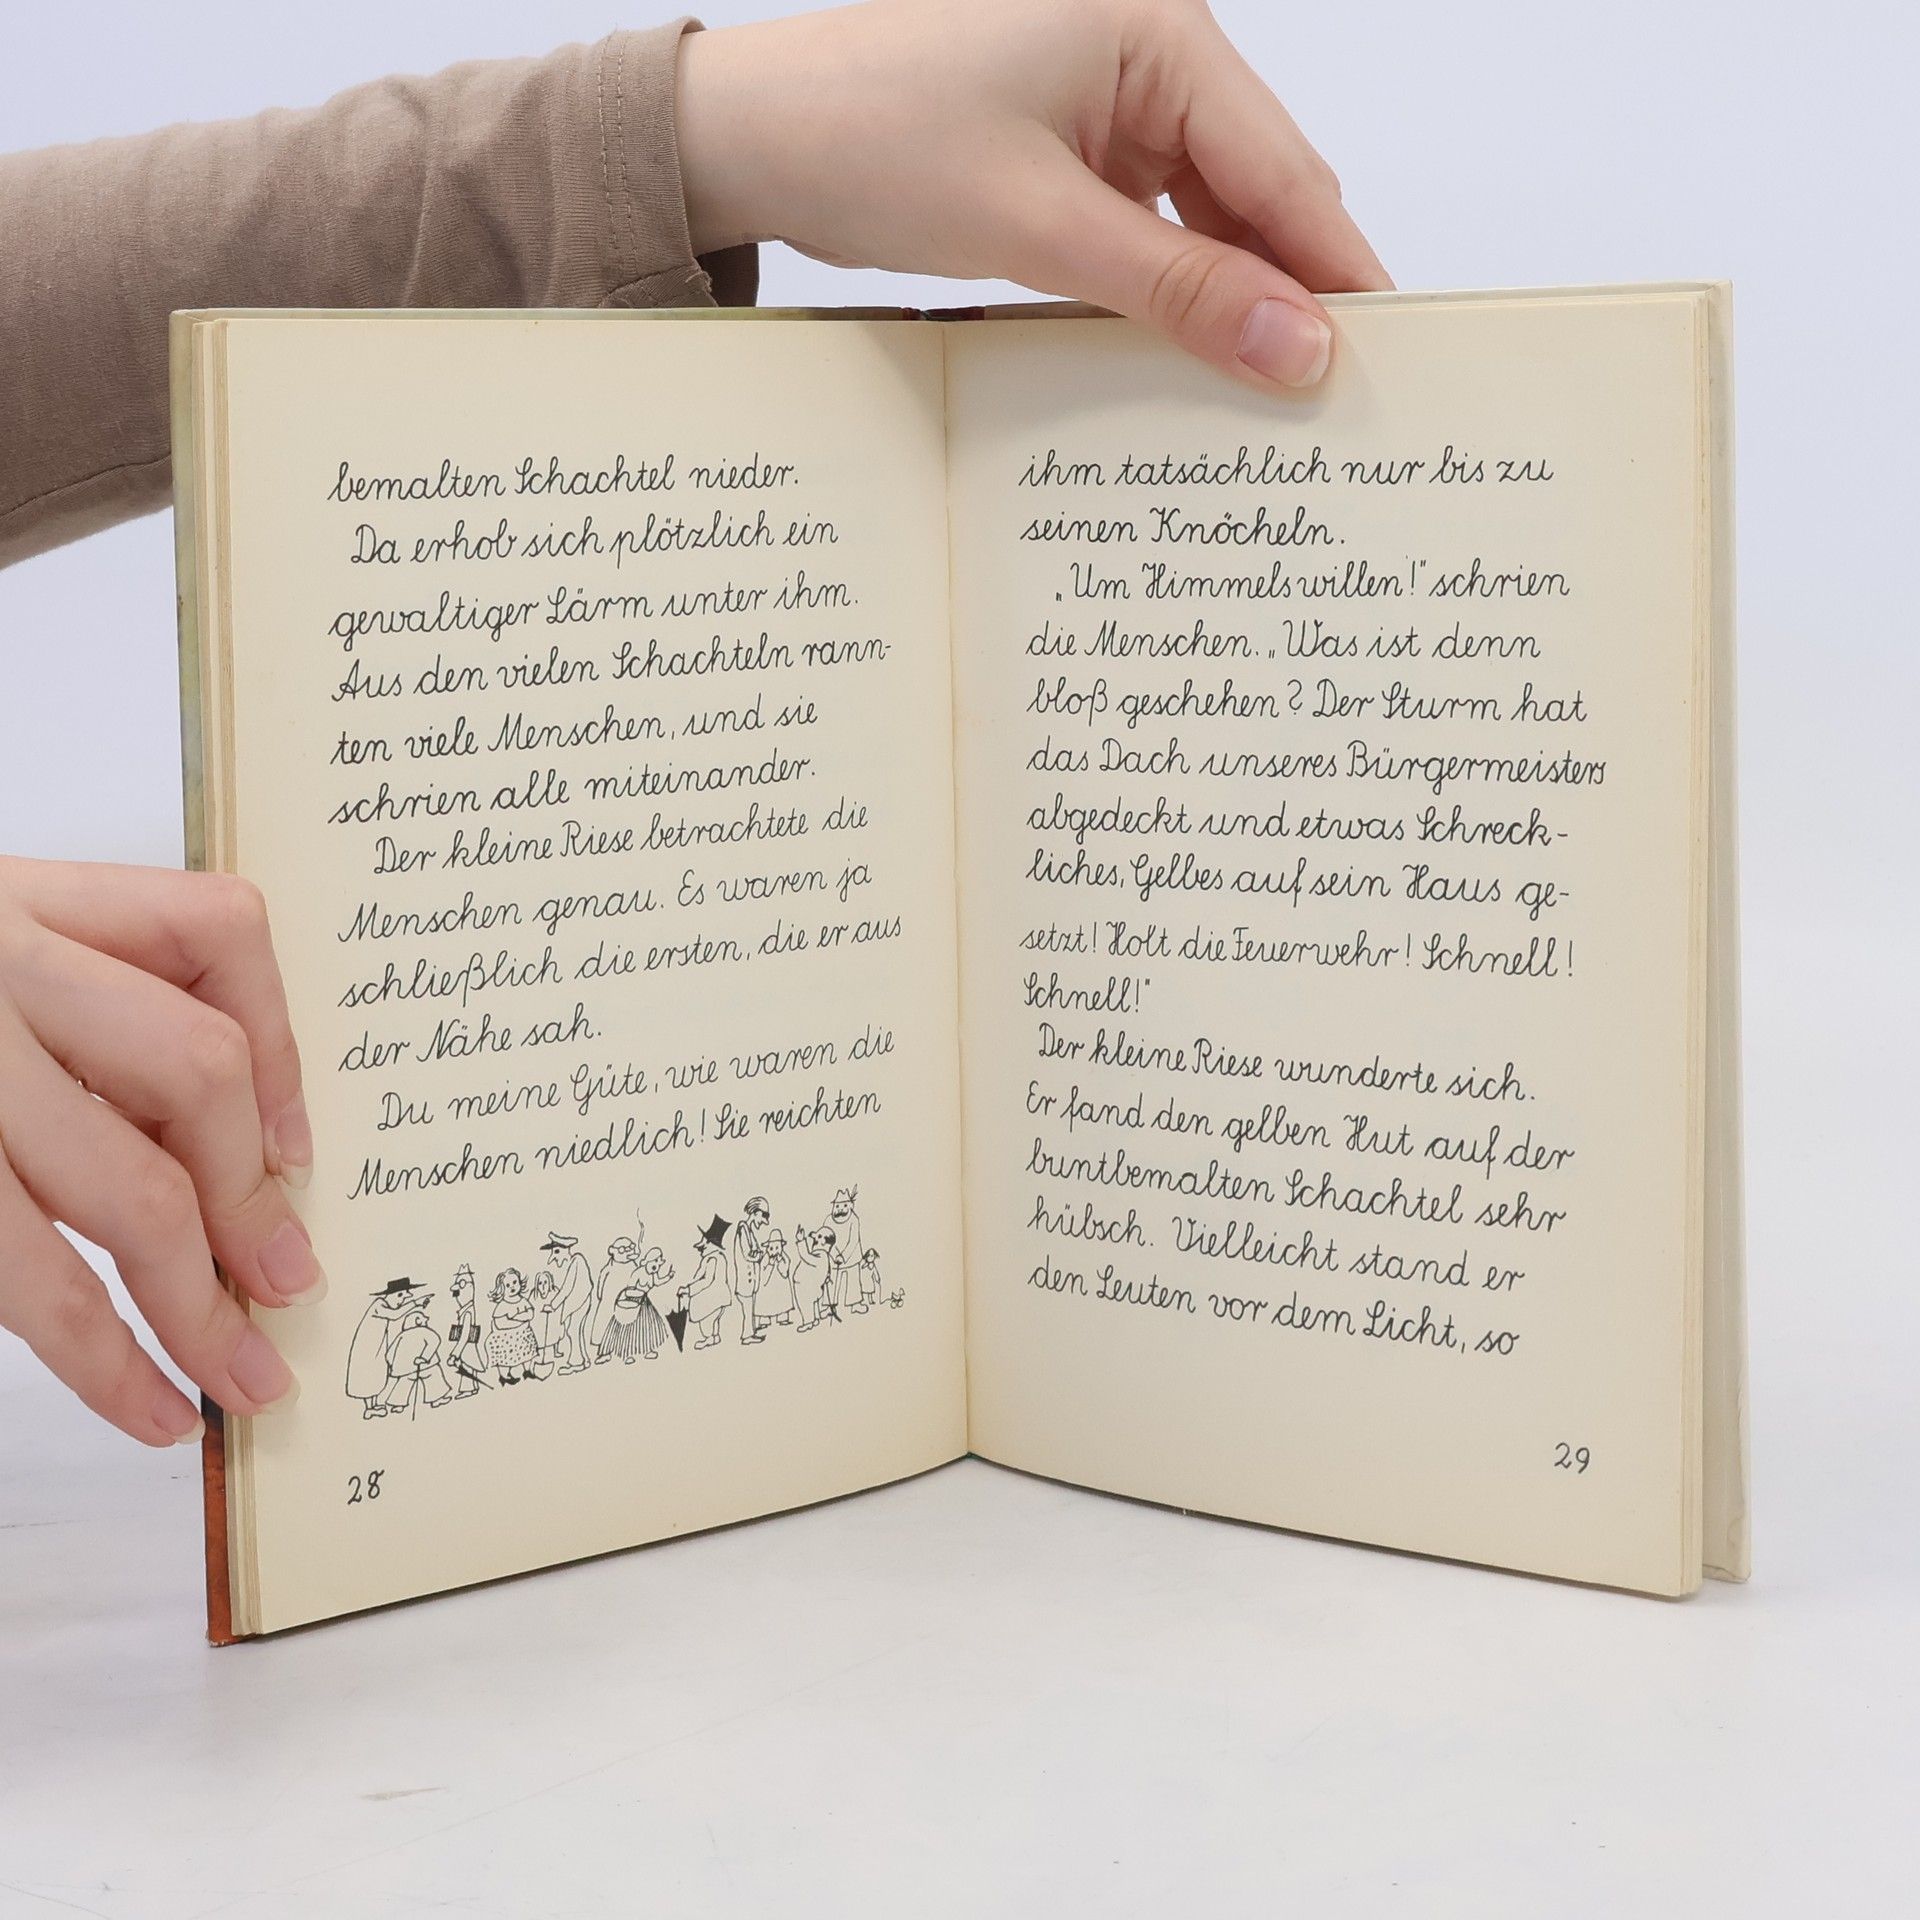 bemalten Schachtel nieder.
Da erhob sich plötzlich ein
gewaltiger Lärm unter ihm.
Aus den vielen Schachteln rann-
ten viele Menschen, und sie
schrien alle miteinander.
Der kleine Riese betrachtete die
Menschen genau. Es waren ja
schließlich die ersten, die er aus
der Nähe sah.
Du meine Güte, wie waren die
Menschen niedlich! Sie reichten
28
ihm tatsächlich nur bis zu
seinen Knöcheln.
„Um Himmels willen!" schrien
die Menschen. „Was ist denn
bloß geschehen? Der Sturm hat
das Dach unseres Bürgermeisters
abgedeckt und etwas Schreck-
liches, Gelbes auf sein Haus ge-
setzt! Holt die Feuerwehr! Schnell!
Schnell!"
Der kleine Riese wunderte sich.
Er fand den gelben Hut auf der
buntbemalten Schachtel sehr
hübsch. Vielleicht stand er
den Leuten vor dem Licht, so
29